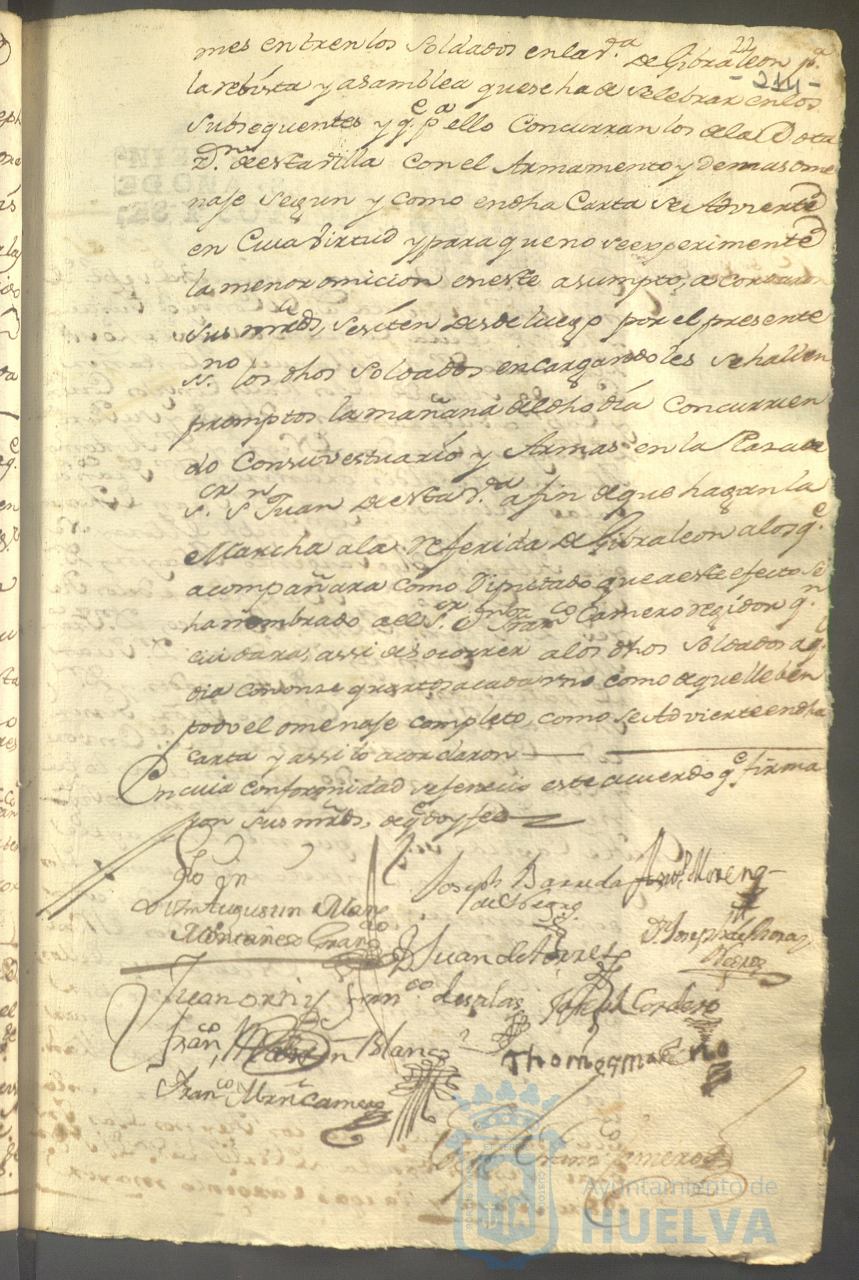 22
mes entren los Soldados en la v.a de Gibraleon p.a
- 214 -
la rebista y asamblea que se ha de selebrar en los
Subsequentes y q.e p.a ello Concurran los de la Dota
z.on de esta villa con el Armamento y demas ome
naje Segun y como en dha Carta se Advierte
en Cuia virtud y para que no se experimente
la menor omicion en este asumpto, acordaron
Sus mrds, se siten desde luego por el presente
s.no los dhos Soldados encargandoles se hallen
promptos la mañana del dho día Concurrien
do Con su vestuario y Armas en la Plaza de
s.or s.n Juan de esta v.a a fin de que hagan la
Marcha a la referida de Gibraleon a los q.e
acompañara como Diputado que a este efecto se
ha nombrado a el S.or D.n Fran.co Camero regidor q.n
cuidara, assi de socorrer a los dhos Soldados a q.
dia con onze quartos a cada uno como de que lleben
todo el omenaje completo, como se Advierte en dha
Carta y assi lo acordaron
En cuia conformidad se fenecio este acuerdo q.e firma
ron sus mrds, de q.e doy fee
Augustin
Montañes
Joseph Barreda
Moreno
D.n Joseph de
D. Juan de Torres
Juan orti y
Fran.co de salas
Joseph Cordero
Fran.co Martin Blanco
Thomas Mar no
Fran.co Mrn Camero
Fran.co Camero
Ayuntamiento de
HUELVA